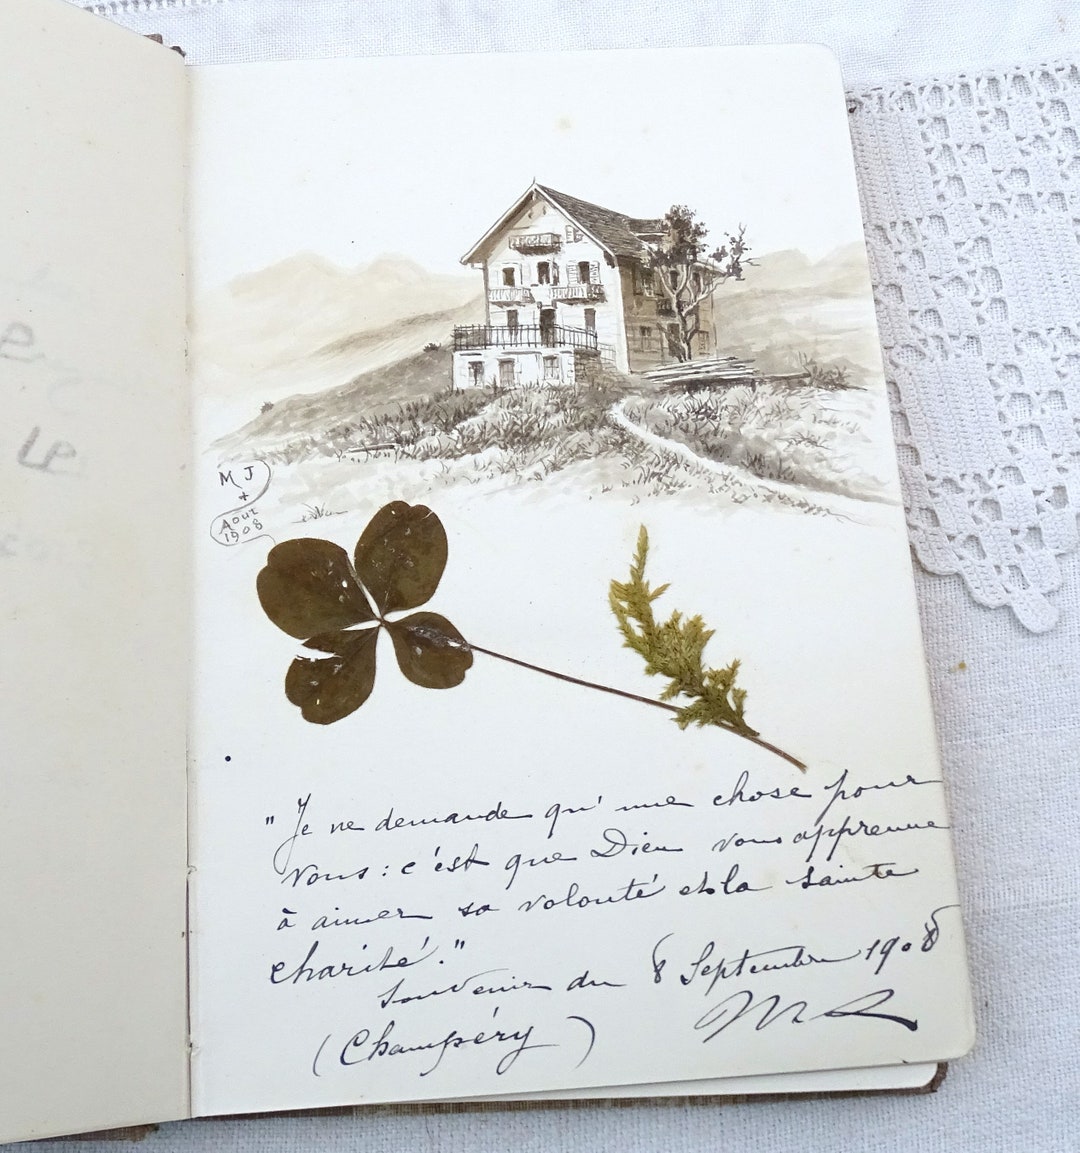 M J
+
Aout
1908
"Je ne demande qu'une chose pour
vous : c'est que Dieu vous apprenne
à aimer sa volonté et la sainte
charité."
Souvenir du 8 Septembre 1908
(Champéry)